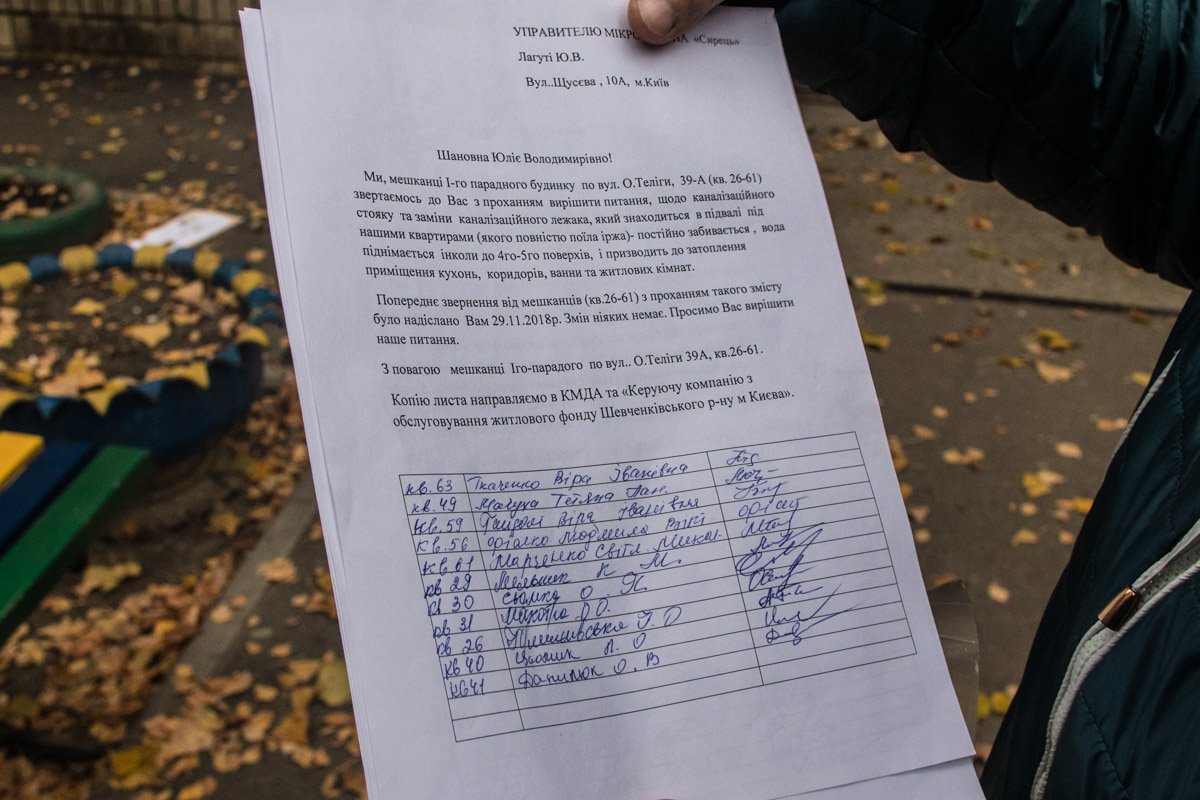 УПРАВИТЕЛЮ «Сирець»
Лагуті Ю.В.
Вул..Щусєва , 10А, м.Київ
Шановна Юліє Володимирівно!
Ми, мешканці І-го парадного будинку по вул. О.Теліги, 39-А (кв. 26-61)
звертаємось до Вас з проханням вирішити питання, щодо каналізаційного
стояку та заміни каналізаційного лежака, який знаходиться в підвалі під
нашими квартирами (якого повністю поїла іржа)- постійно забивається , вода
піднімається інколи до 4го-5го поверхів, і призводить до затоплення
приміщення кухонь, коридорів, ванни та житлових кімнат.
Попереднє звернення від мешканців (кв.26-61) з проханням такого змісту
було надіслано Вам 29.11.2018р. Змін ніяких немає. Просимо Вас вирішити
наше питання.
З повагою мешканці Іго-парадого по вул.. О.Теліги 39А, кв.26-61.
Копію листа направляємо в КМДА та «Керуючу компанію з
обслуговування житлового фонду Шевченківського р-ну м Києва».
кв.63 Ткаченко Віра Іванівна
кв.49 Тетяна
кв.59 Віра Іванівна
кв.56 Людмила
кв.61 Марченко Світл. Микол.
кв 29 Мельник К М.
кв 30 О. П.
кв 31 О.
кв 26 Г. О
кв 40 Л. О
кв41 Данилюк О. В